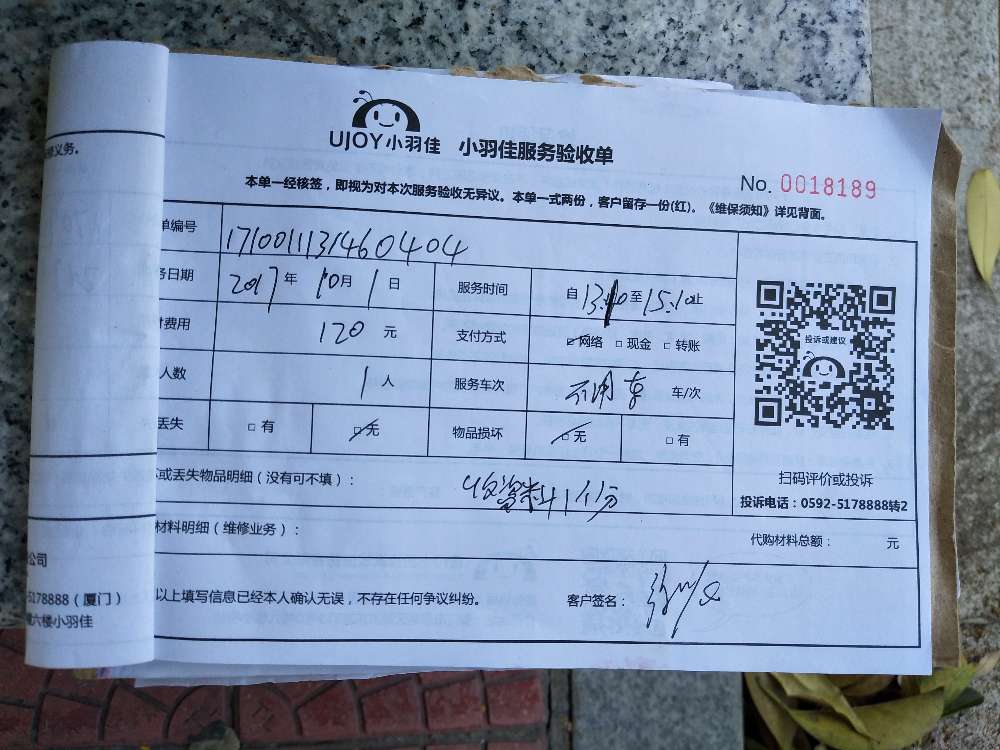 UJOY小羽佳 小羽佳服务验收单
No. 0018189
本单一经核签，即视为对本次服务验收无异议。本单一式两份，客户留存一份(红)。《维保须知》详见背面。
单编号 17100111314460404
务日期 2017年10月1日 服务时间 自13:10至15:10止
费用 120元 支付方式 网络 现金 转账
人数 1人 服务车次 不用车 车/次
丢失 有 无 物品损坏 无 有
投诉或建议
扫码评价或投诉
投诉电话：0592-5178888转2
或丢失物品明细（没有可不填）： 收资料1份
材料明细（维修业务）：
代购材料总额： 元
以上填写信息已经本人确认无误，不存在任何争议纠纷。
客户签名：
义务。
公司
5178888（厦门）
六楼小羽佳